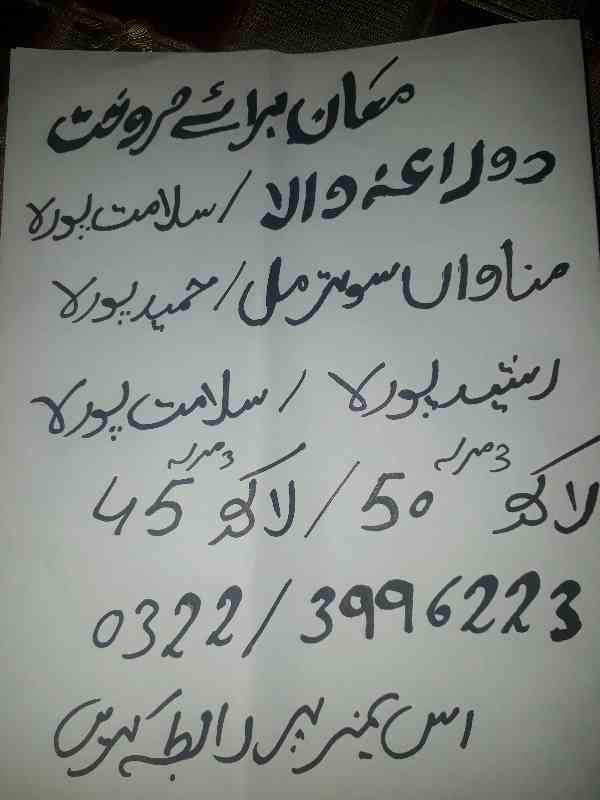 مکان برائے فروخت
دوراعہ والا / سلامت پورہ
مناواں سوتر مل / حمید پورہ
رشید پورہ / سلامت پورہ
3 مرلہ 3 مرلہ
لاکھ 50 / لاکھ 45
0322/3996223
اس نمبر پر رابطہ کریں